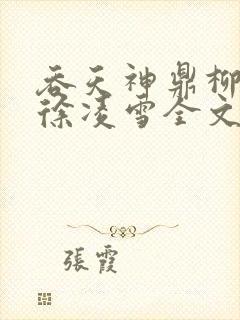 吞天神鼎柳
徐凌雪全文
張霞